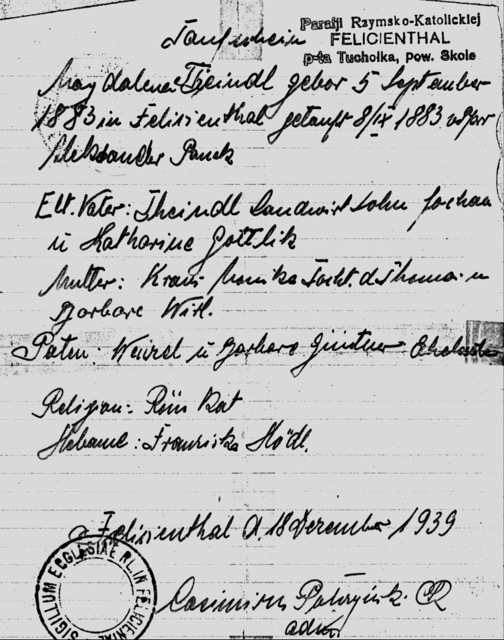 Taufschein
Parafji Rzymsko-Katolickiej
FELICIENTHAL
p-ta Tucholka, pow. Skole
Magdalena Theindl gebor 5 September
1883 in Felizienthal getauft 8/IX 1883 v. Pfar
Aleksander Panek
Elt. Vater: Theindl Landwirt Sohn Johan
u Katharine Gottlik
Mutter: Kraus Monika Tocht. d. Thomas u
Barbara Wirl.
Paten: Wenzel u Barbara Güntner
Religion: Röm Kat
Hebame: Franziska Hödl.
Felizienthal d. 18 Dezember 1939
Casimirus
adm
SIGILLUM ECCLESIAE R.L. IN FELICIENTHAL